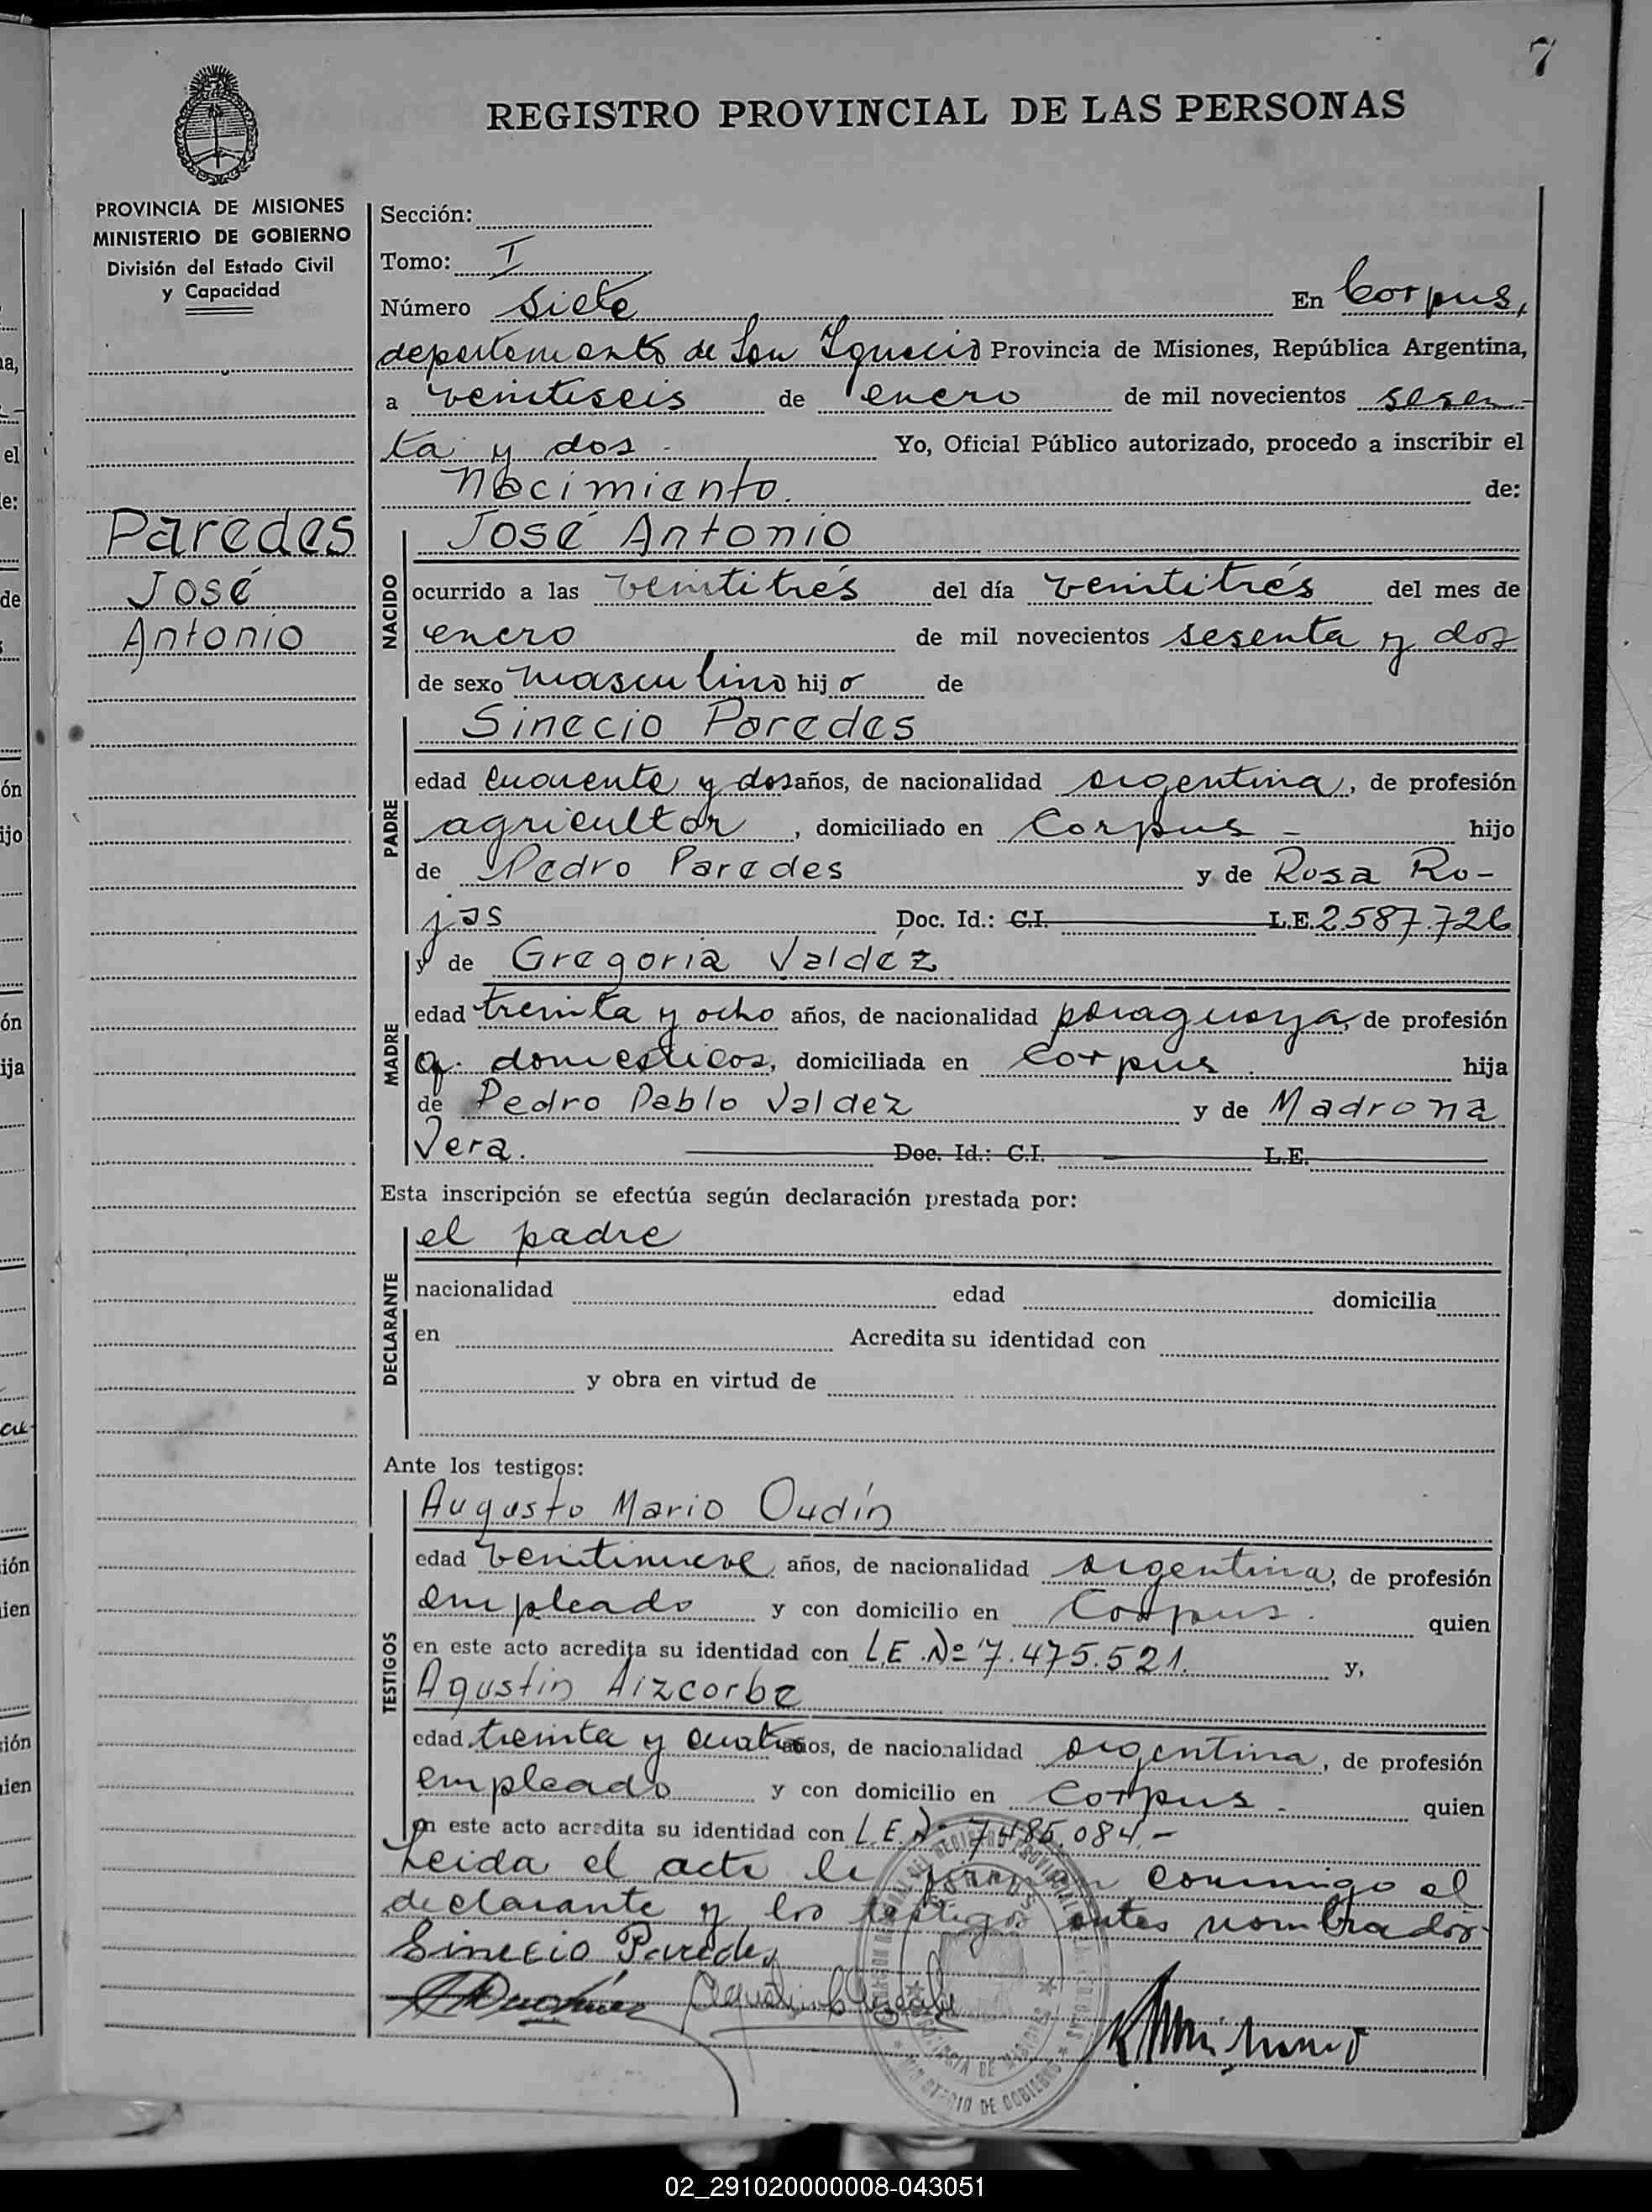 7
REGISTRO PROVINCIAL DE LAS PERSONAS
PROVINCIA DE MISIONES
MINISTERIO DE GOBIERNO
División del Estado Civil
y Capacidad
Paredes
José
Antonio
Sección:
Tomo: I
Número siete En Corpus,
departamento de San Ignacio Provincia de Misiones, República Argentina,
a veintiseis de enero de mil novecientos sesen-
ta y dos. Yo, Oficial Público autorizado, procedo a inscribir el
Nacimiento. de:
José Antonio
NACIDO
ocurrido a las veintitrés del día veintitrés del mes de
enero de mil novecientos sesenta y dos
de sexo masculino hijo de
Sinecio Paredes
PADRE
edad cuarenta y dos años, de nacionalidad argentina, de profesión
agricultor, domiciliado en Corpus - hijo
de Pedro Paredes y de Rosa Ro-
jas Doc. Id.: C.I. L.E. 2.587.726
y de Gregoria Valdéz
MADRE
edad treinta y ocho años, de nacionalidad paraguaya, de profesión
q. domesticos, domiciliada en Corpus. hija
de Pedro Pablo Valdez y de Madrona
Vera. Doc. Id.: C.I. L.E.
Esta inscripción se efectúa según declaración prestada por:
el padre
DECLARANTE
nacionalidad edad domicilia
en Acredita su identidad con
y obra en virtud de
Ante los testigos:
Augusto Mario Oudín
TESTIGOS
edad veintinueve años, de nacionalidad argentina, de profesión
empleado y con domicilio en Corpus. quien
en este acto acredita su identidad con L.E. Nº 7.475.521. y,
Agustín Aizcorbe
edad treinta y cuatro años, de nacionalidad argentina, de profesión
empleado y con domicilio en Corpus - quien
en este acto acredita su identidad con L.E. Nº 7.485.084.-
Leida el acta la firman conmigo el
declarante y los testigos antes nombrados.
Sinecio Paredes
MINISTERIO DE GOBIERNO
02_291020000008-043051